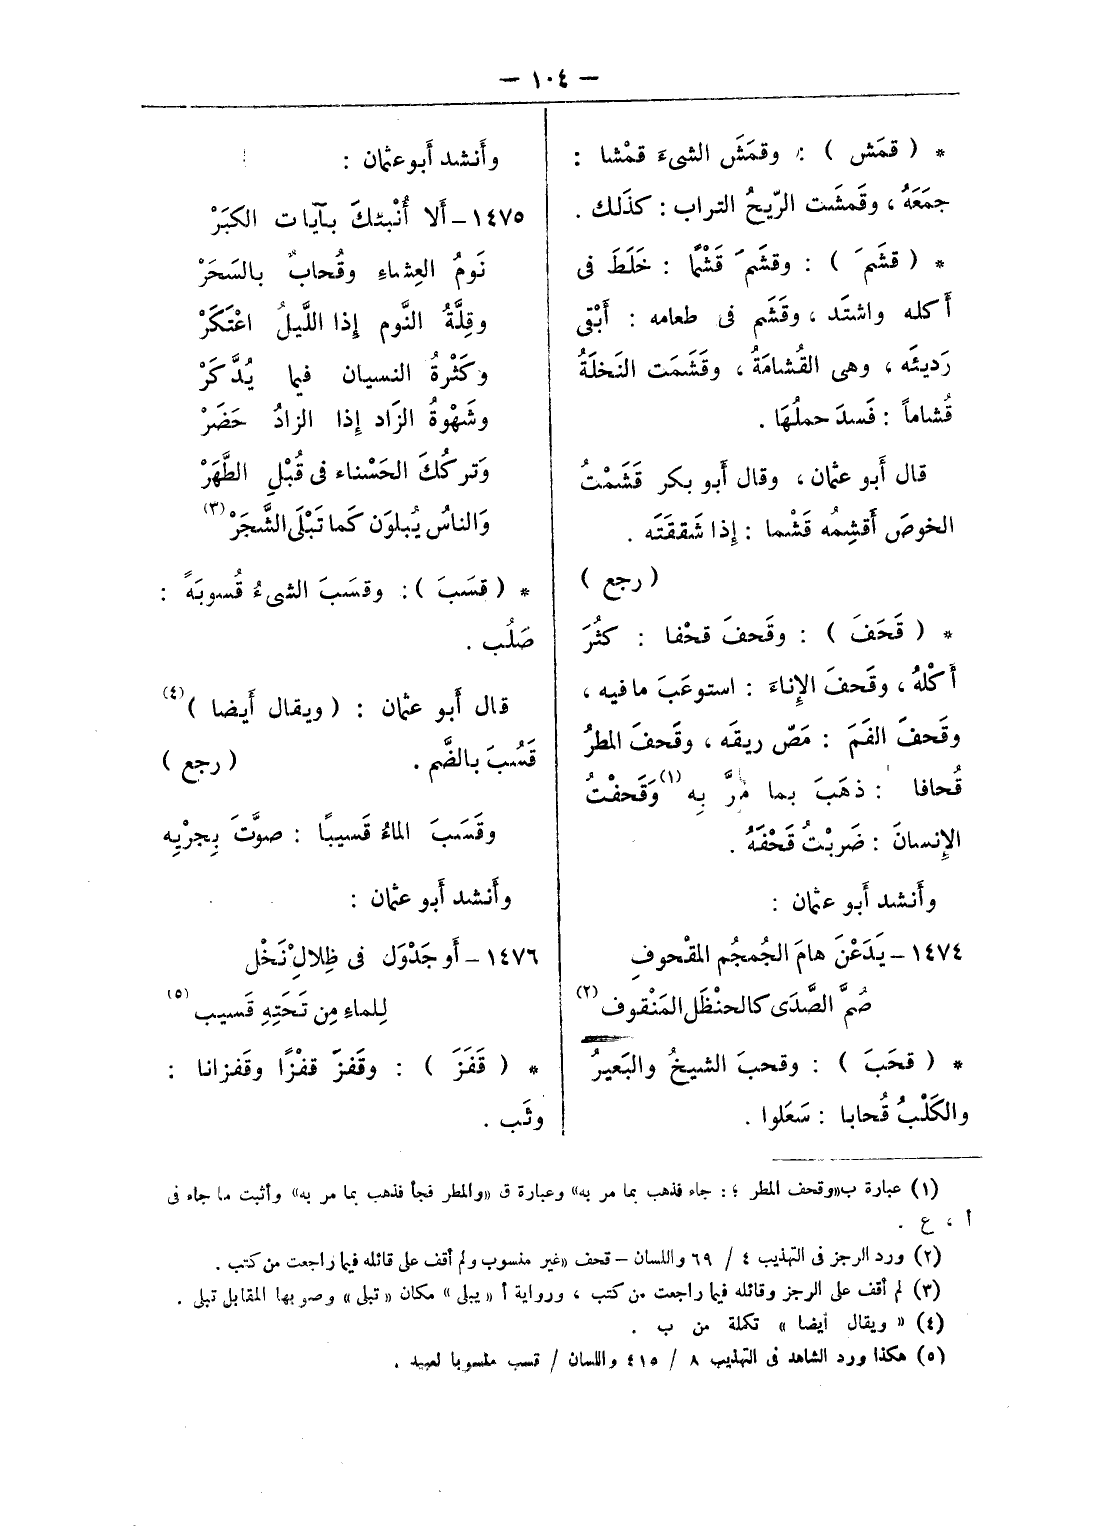 — ١٠٤ —
* ( قمَش ) : وقمَشَ الشيءَ قمْشا :
جمَعَهُ ، وقَمشَت الرّيحُ التراب : كذَلك .
* ( قشَمَ ) : وقشَم قَشْمًا : خَلَطَ فى
أَكله واشتَد ، وقَشَم فى طعامه : أَبْقى
رَديئَه ، وهى القُشامَةُ ، وقَشَمَت النَخلَةُ
قُشاماً : فَسدَ حملُهَا .
قال أَبو عثمان ، وقال أَبو بكر قَشَمْتُ
الخوصَ أَقشِمُه قَشْما : إِذا شَققَتَه .
( رجع )
* ( قَحَفَ ) : وقَحفَ قحْفا : كثُرَ
أَكْلهُ ، وقَحفَ الإِناءَ : استوعَبَ ما فيه ،
وقَحفَ الفَمَ : مَصّ ريقَه ، وقَحفَ المطرُ
قُحافا : ذهَبَ بما مَرَّ بِه (١) وَقَحفْتُ
الإِنسانَ : ضَربْتُ قَحْفَهُ .
وأَنشد أَبو عثمان :
١٤٧٤ – يَدَعْنَ هامَ الجُمجُم المقْحوفِ
صُمَّ الصَّدَى كالحنْظَل المَنْقوف (٢)
* ( قحَبَ ) : وقحبَ الشيخُ والبَعيرُ
والكَلْبُ قُحابا : سَعَلوا .
وأَنشد أَبو عثمان :
١٤٧٥ – أَلا أُنْبئكَ بآيات الكبَرْ
نَومُ العِشاءِ وقُحابٌ بالسَحَرْ
وقِلَّةُ النَّوم إِذا اللَّيلُ اعْتَكَرْ
وكَثْرةُ النسيان فيما يُدَّكَرْ
وشَهْوةُ الزَاد إِذا الزادُ حَضَرْ
وَتركُكَ الحَسْناء فى قُبْلِ الطَّهَرْ
وَالناسُ يُبلوَن كَما تَبْلَى الشَّجَرْ (٣)
* ( قسَبَ ) : وقسَبَ الشيءُ قُسوبَةً :
صَلُب .
قال أَبو عثمان : ( ويقال أَيضا ) (٤)
قَسُبَ بالضَّم . ( رجع )
وقَسَبَ الماءُ قَسيبًا : صوَّتَ بِجرْيِه
وأَنشد أَبو عثمان :
١٤٧٦ – أَو جَدْوَل فى ظِلالِ نَخْل
لِلماءِ مِن تَحَتِهِ قَسيب (٥)
* ( قَفَزَ ) : وقَفزَ قفزًا وقفزانا :
وثَب .
(١) عبارة ب «وقحف المطر ؛ : جاء فذهب بما مر به» وعبارة ق «والمطر فجأ فذهب بما مر به» وأثبت ما جاء فى
أ ، ع .
(٢) ورد الرجز فى التهذيب ٤ / ٦٩ واللسان – قحف «غير منسوب ولم أقف على قائله فيما راجعت من كتب .
(٣) لم أقف على الرجز وقائله فيما راجعت من كتب ، ورواية أ «يبلى» مكان «تبلى» وصوبها المقابل تبلى .
(٤) « ويقال أيضا » تكملة من ب .
(٥) هكذا ورد الشاهد فى التهذيب ٨ / ٤١٥ واللسان / قسب منسوبا لعبيد .